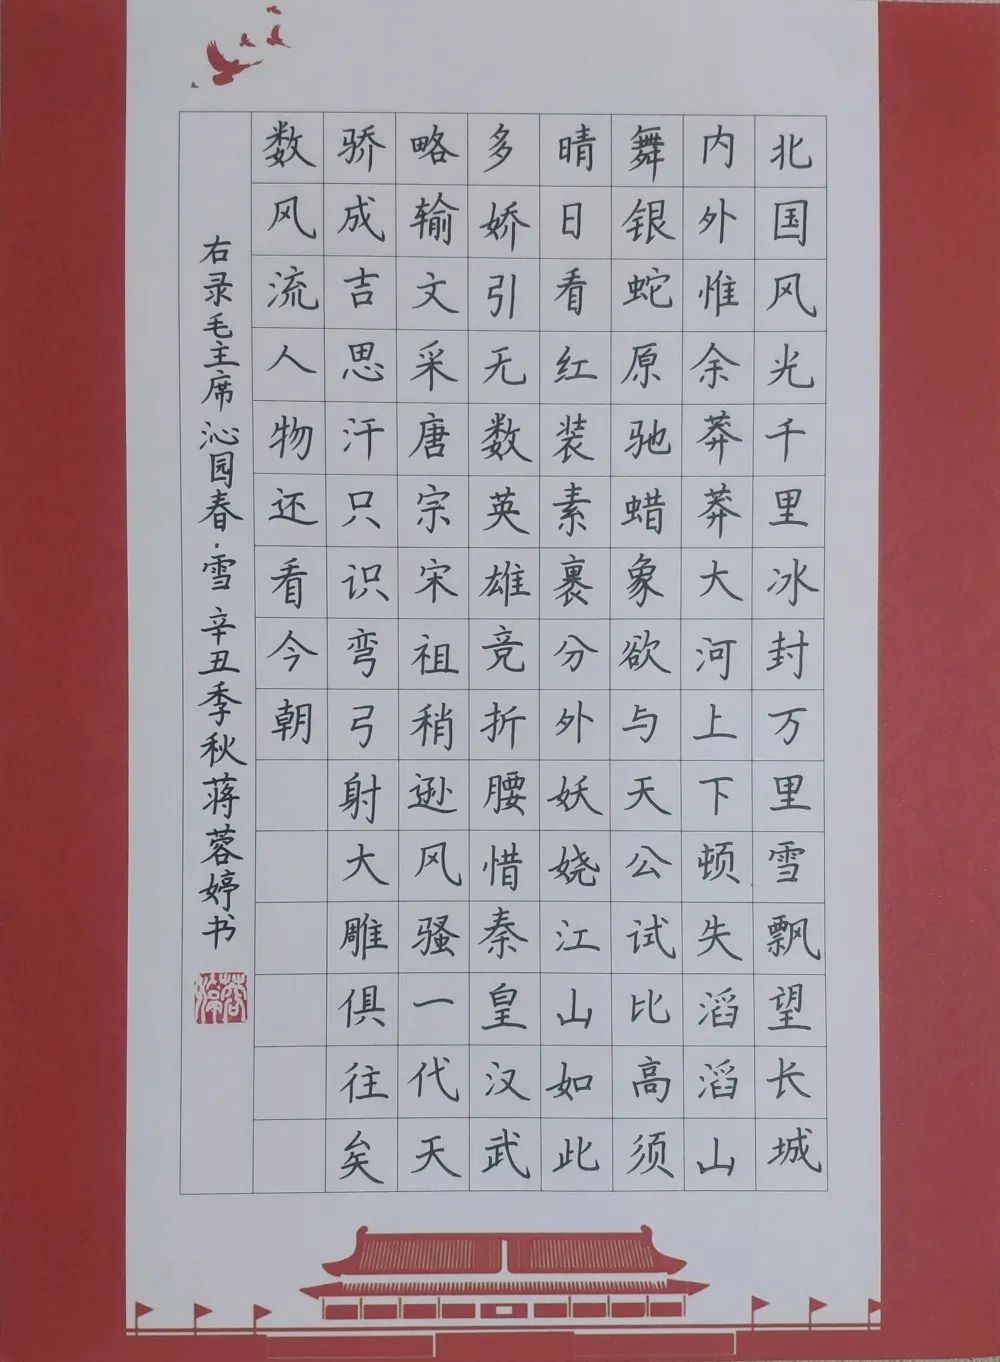 北国风光千里冰封万里雪飘望长城
内外惟余莽莽大河上下顿失滔滔山
舞银蛇原驰蜡象欲与天公试比高须
晴日看红装素裹分外妖娆江山如此
多娇引无数英雄竞折腰惜秦皇汉武
略输文采唐宗宋祖稍逊风骚一代天
骄成吉思汗只识弯弓射大雕俱往矣
数风流人物还看今朝
右录毛主席沁园春·雪 辛丑季秋蒋蓉婷书